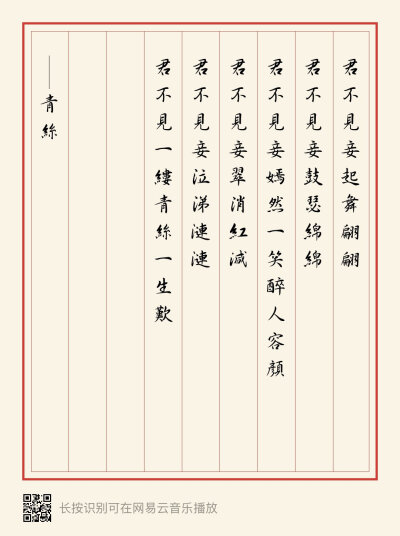 君不見妾起舞翩翩
君不見妾鼓瑟綿綿
君不見妾嫣然一笑醉人容顏
君不見妾翠消紅減
君不見妾泣涕漣漣
君不見一縷青絲一生歎
——青絲
长按识别可在网易云音乐播放